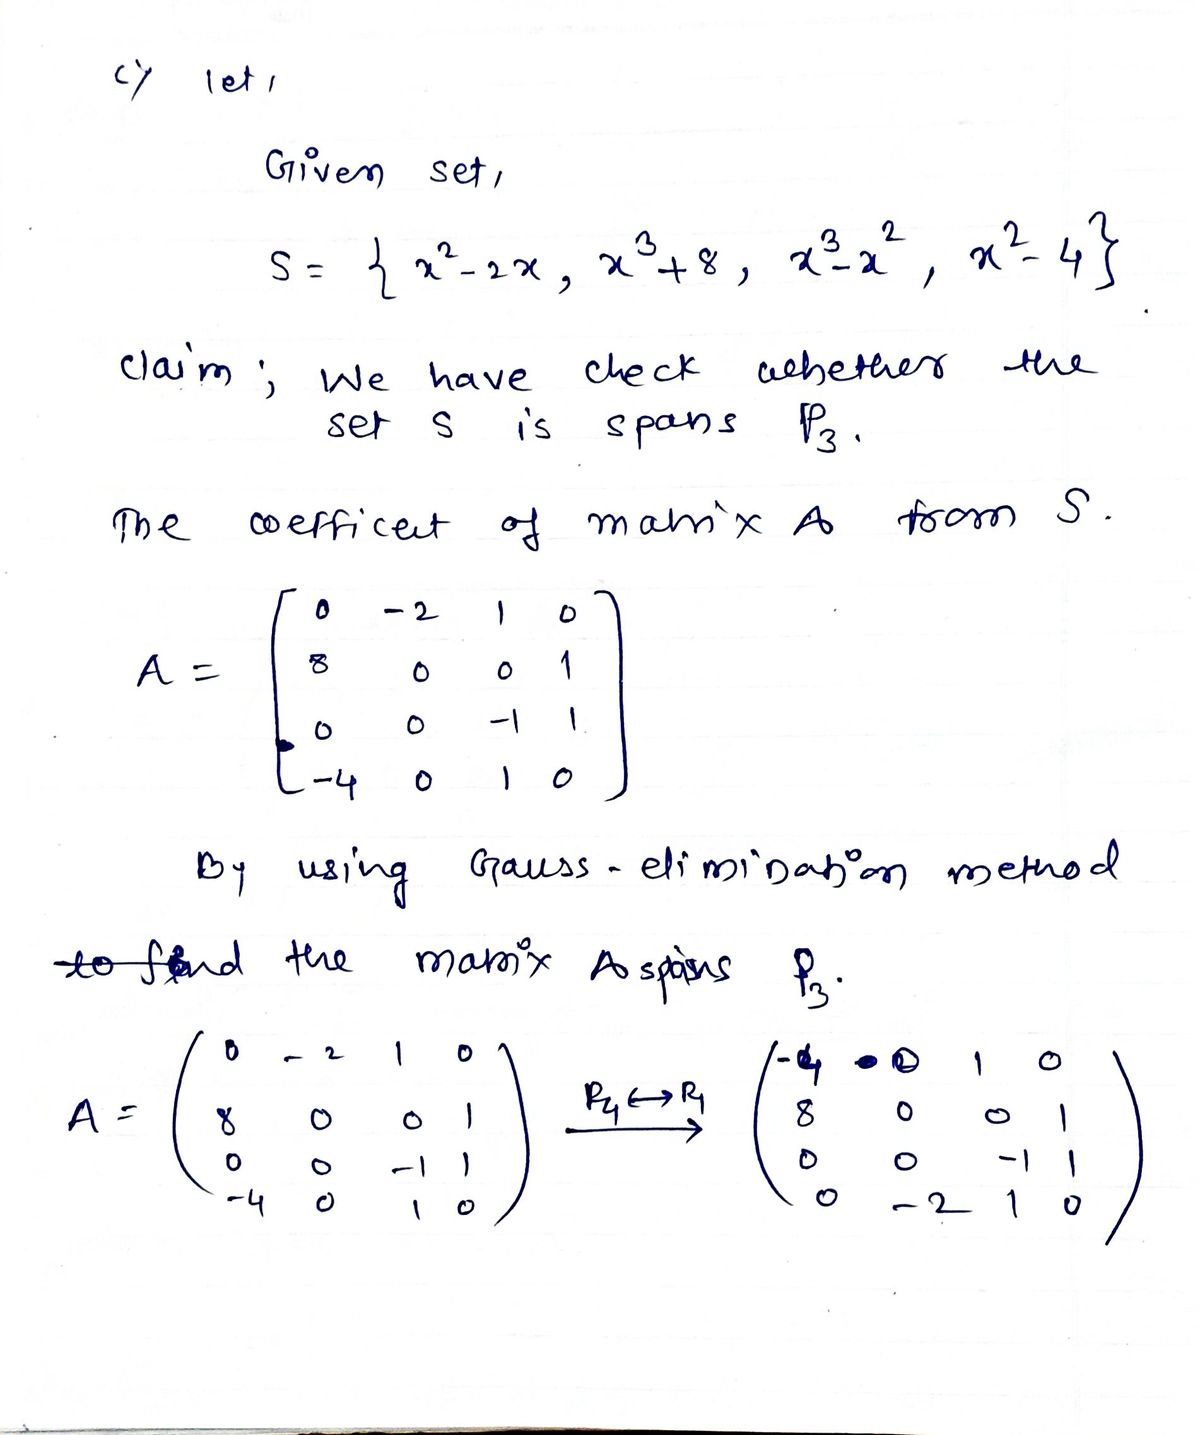 c) let,
Given set,
S = { x² - 2x, x³ + 8, x³ - x², x² - 4 }
claim; We have check whether the
set S is spans P₃.
The coefficet of matrix A from S.
A = [ 0 -2 1 0
8 0 0 1
0 0 -1 1
-4 0 1 0 ]
By using Gauss-elimination method
to find the matrix A spans P₃.
A = ( 0 -2 1 0
8 0 0 1
0 0 -1 1
-4 0 1 0 ) R₄ ↔ R₁ → ( -4 0 1 0
8 0 0 1
0 0 -1 1
0 -2 1 0 )